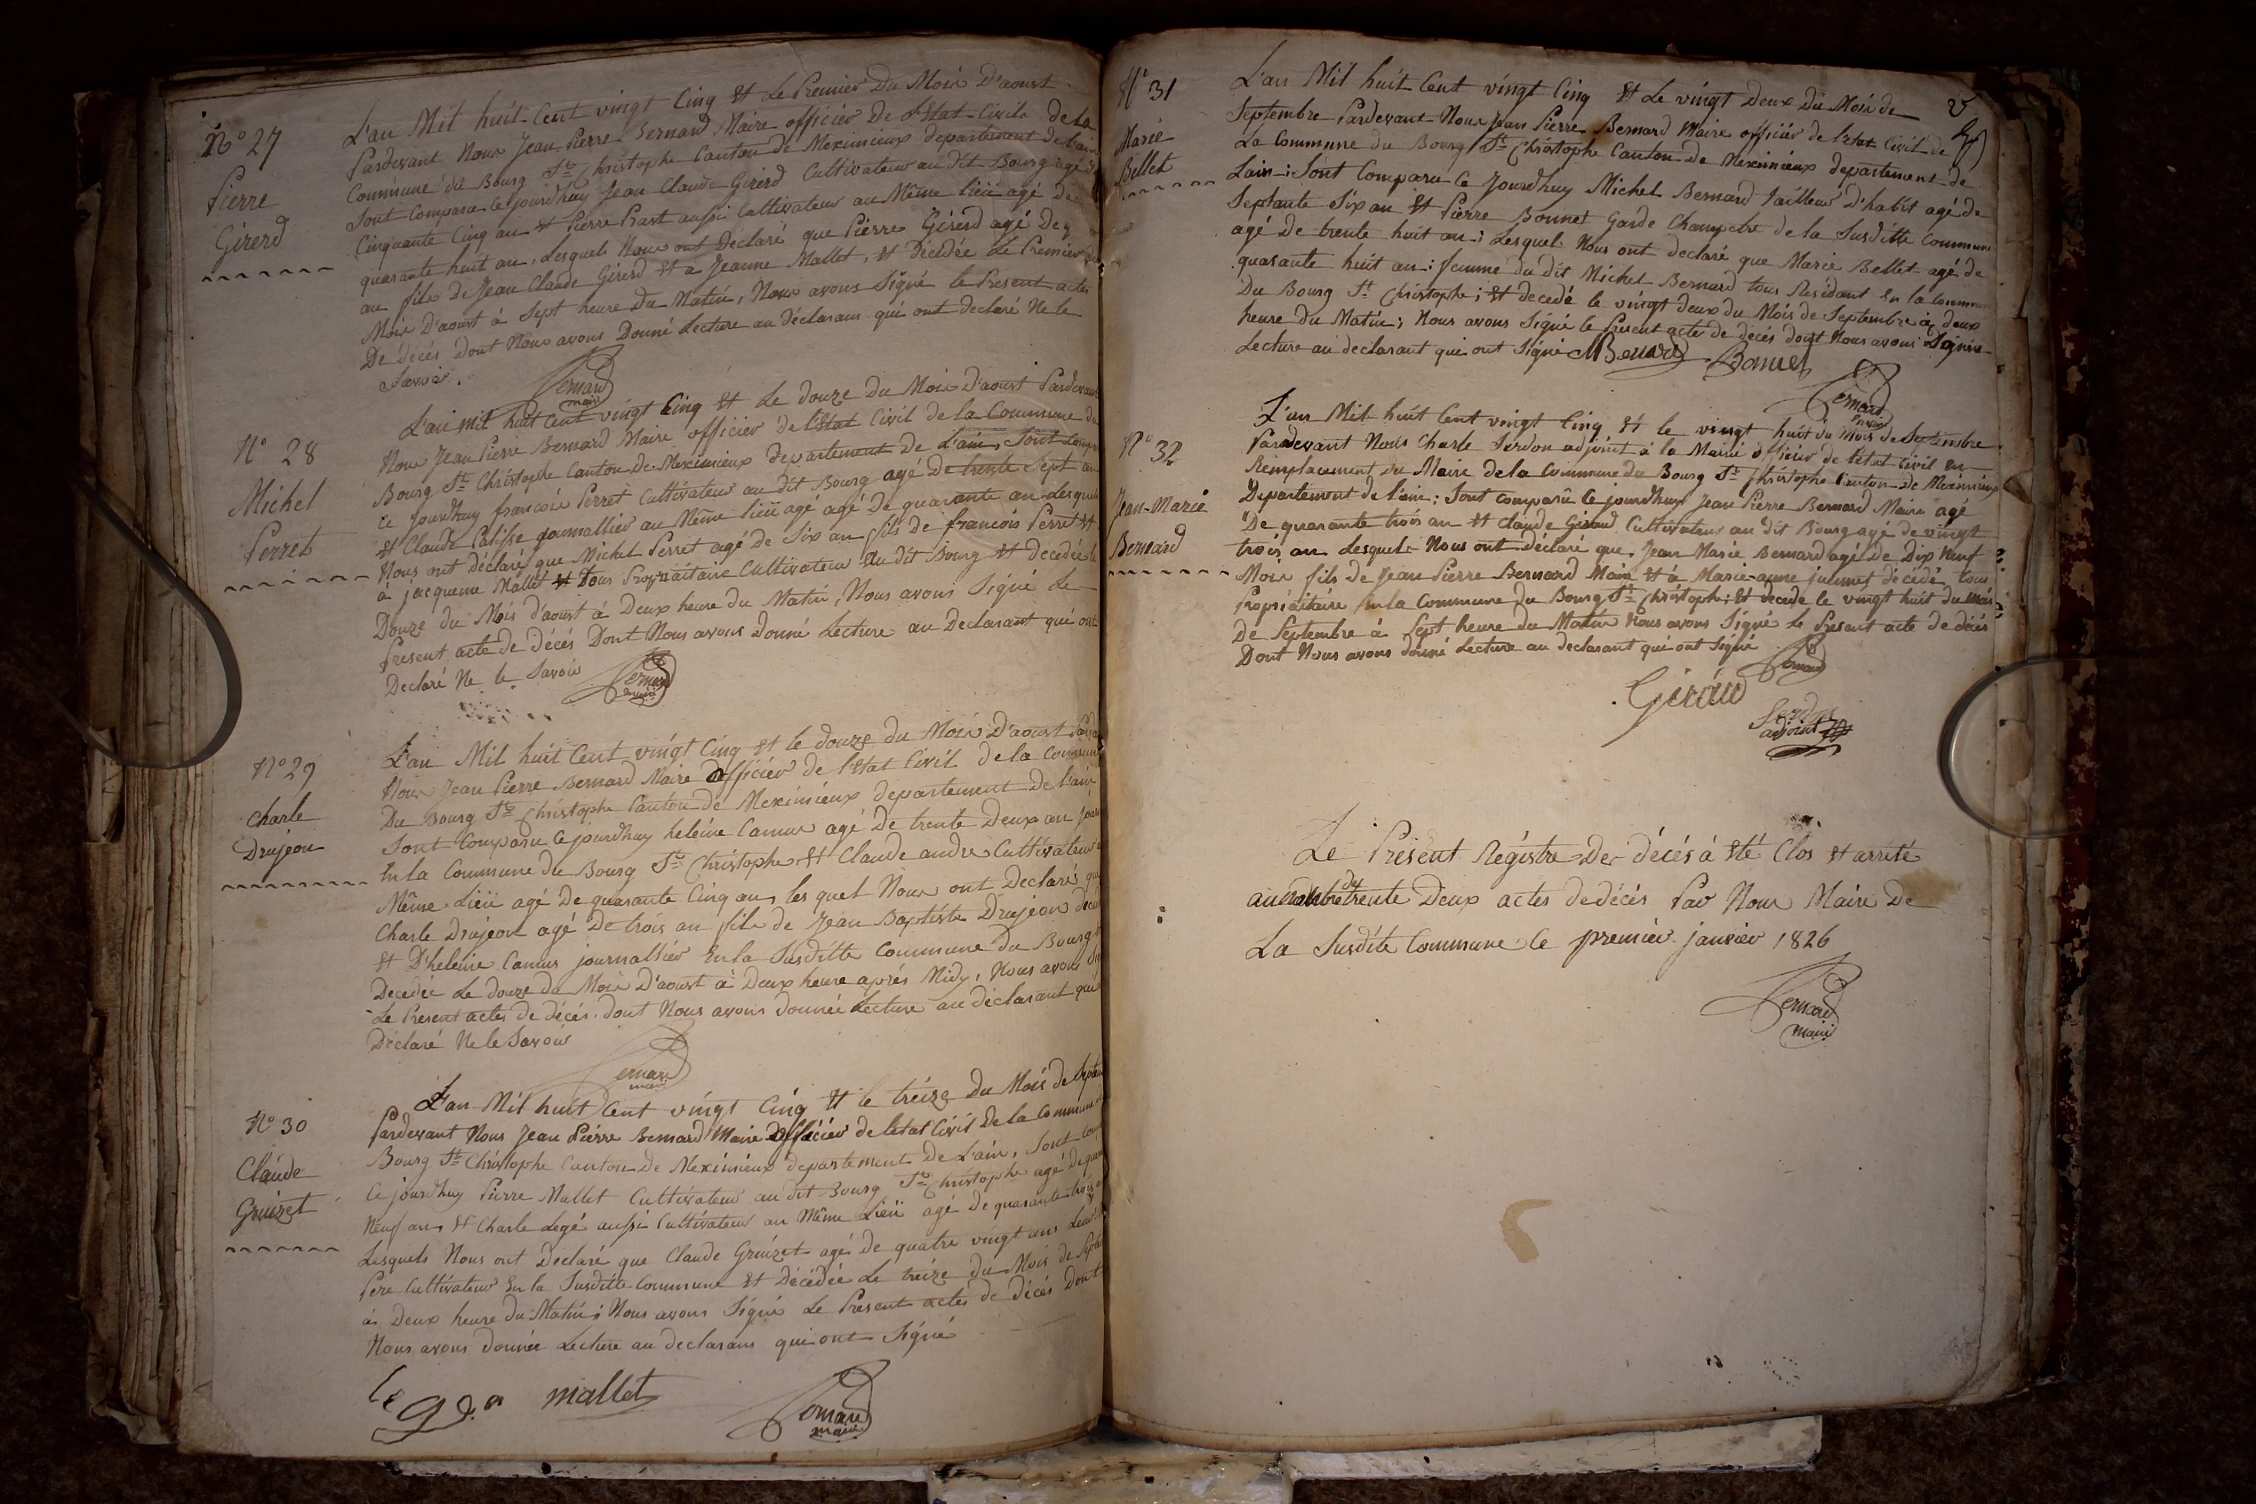 N° 27
Pierre
Girerd
L'an Mil huit Cent vingt Cinq Et Le Premier Du Mois D'aoust
Pardevant Nous Jean Pierre Bernard Maire officier De L'Etat Civil De La
Commune du Bourg St Christophe Canton De Meximieux departement De L'ain
Sont Comparu Ce jourd'huy Jean Claude Girerd Cultivateur au dit Bourg agé de
Cinquante Cinq an Et Pierre Prast aussi Cultivateur au Même lieu agé De
quarante huit an, Lesquels Nous ont Declaré que Pierre Girerd agé De
an fils de Jean Claude Girerd Et a Jeanne Mallet, Et Décédée Le Premier du
Mois D'aoust à Sept heure Du Matin, Nous avons Signé le Present actes
De décés dont Nous avons Donné Lecture au Déclarans qui ont declaré Ne le
Savoir.
Bernard
maire
N° 28
Michel
Perret
L'an mil huit Cent vingt Cinq Et Le douze Du Mois D'aoust Pardevant
Nous Jean Pierre Bernard Maire officier de l'Etat Civil de la Commune du
Bourg St Christophe Canton De Meximieux departement De L'ain, Sont Comparu
Ce Jourdhuy francois Perret Cultivateur au dit Bourg agé De trente Sept an
Et Claude Calisse journallier au Même lieu agé agé De quarante an Lesquels
Nous ont déclaré que Michel Perret agé De Six an fils de francois Perret Et
a jacqueme Mallet Et Tous Propriaitaire Cultivateur Du dit Bourg Et decedée le
Douze du Mois d'aoust à Deux heure du Matin, Nous avons Signé Le
Present acte de décés Dont Nous avons donné Lecture au Declarant qui ont
Declaré Ne le Savoir
Bernard
maire
N° 29
Charle
Drujeon
L'an Mil huit Cent vingt Cinq Et le douze du Mois D'aoust Pardevant
Nous Jean Pierre Bernard Maire Officier de l'Etat Civil de la Commune
Du Bourg St Christophe Canton De Meximieux departement De L'ain
Sont Comparu Ce jourdhuy heleine Camus agé De trente Deux an
En la Commune du Bourg St Christophe Et Claude andre Cultivateur
Même Lieu agé De quarante Cinq an, les quel Nous ont Declaré que
Charle Drujeon agé De trois an fils de Jean Baptiste Drujeon
Et D'heleine Camus journallier En la Susditte Commune du Bourg
Decedée Le douze du Mois D'aoust à Deux heure aprés Midy, Nous avons
Le Present actes de décés dont Nous avons donnée Lecture au déclarant qui
Déclaré Ne le Savoir
Bernard
maire
N° 30
Claude
Gruizet
L'an Mil huit Cent vingt Cinq Et le treize du Mois de Septembre
Pardevant Nous Jean Pierre Bernard Maire Officier de l'Etat Civil De la Commune
Bourg St Christophe Canton De Meximieux departement De L'ain, Sont Comparu
Ce jourdhuy Pierre Mallet Cultivateur au dit Bourg St Christophe agé De
Neuf an, Et Charle Legé aussi Cultivateur au Même Lieu agé de quarante trois
Lesquels Nous ont Declaré que Claude Gruizet agé de quatre vingt ans
Pere Cultivateur En la Susditte Commune Et Décédée Le treize du Mois de Septembre
à Deux heure du Matin; Nous avons Signé Le Present actes de décés Dont
Nous avons donnée Lecture au declarans qui ont Signé
le gé mallet
Bernard
maire
N° 31
Marie
Bellet
L'an Mil huit Cent vingt Cinq Et Le vingt Deux Du Mois de
Septembre Pardevant Nous Jean Pierre Bernard Maire officier de l'Etat Civil de
La Commune du Bourg St Christophe Canton de Meximieux departement de
Lain; Sont Comparu Ce Jourdhuy Michel Bernard Tailleur D'habit agé de
Septante Six an Et Pierre Bonnet Garde Champetre de la Susditte Commune
agé De trente huit an; Lesquel Nous ont declaré que Marie Bellet agé de
quarante huit an; femme du dit Michel Bernard tous Residant En la Commune
Du Bourg St Christophe; Et decedé le vingt deux du Mois de Septembre à deux
heure du Matin; Nous avons Signé le Present actes de decés dont Nous avons
Lecture au declarant qui ont Signé MBernard Bonnet
Bernard
maire
N° 32
Jean-Marie
Bernard
L'an Mil huit Cent vingt Cinq Et le vingt huit du Mois de Septembre
Pardevant Nous Charle Jerdon adjoint à la Mairie officier de l'Etat civil En
Remplacement du Maire de la Commune du Bourg St Christophe Canton de Meximieux
Departement de l'ain; Sont comparu Ce jourdhuy Jean Pierre Bernard Maire agé
De quarante trois an Et Claude Giraud Cultivateur au dit Bourg agé de vingt
trois an Lesquels Nous ont déclaré que Jean Marie Bernard agé de Dix Neuf
Mois fils de Jean Pierre Bernard Maire Et à Marie-anne décédé tous
Propriétaire En la Commune du Bourg St Christophe; Et decede le vingt huit du Mois
De Septembre à Sept heure du Matin Nous avons Signé Le Present acte de décés
Dont Nous avons donné Lecture au declarant qui ont Signé
Bernard
Giraud
adjoint
Le Présent Régistre Des décés à été Clos et arrêté
au Nombre de trente Deux actes de décés Par Nous Maire De
La Susdite Commune le premier janvier 1826
Bernard
maire